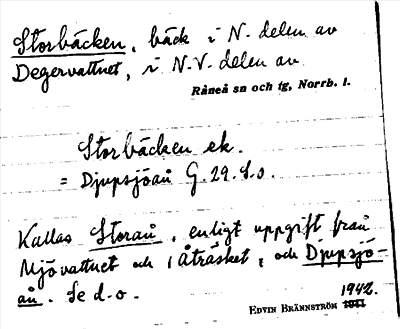 Storbäcken, bäck i N. delen av
Degervattnet, i N.V. delen av
Råneå sn och tg, Norrb. l.
Storbäcken ek.
= Djupsjöån G. 29. S.o.
Kallas Storån, enligt uppgift från
Mjövattnet och i Åträsket, och Djupsjö-
ån. Se d.o.
1942.
EDVIN BRÄNNSTRÖM 1941